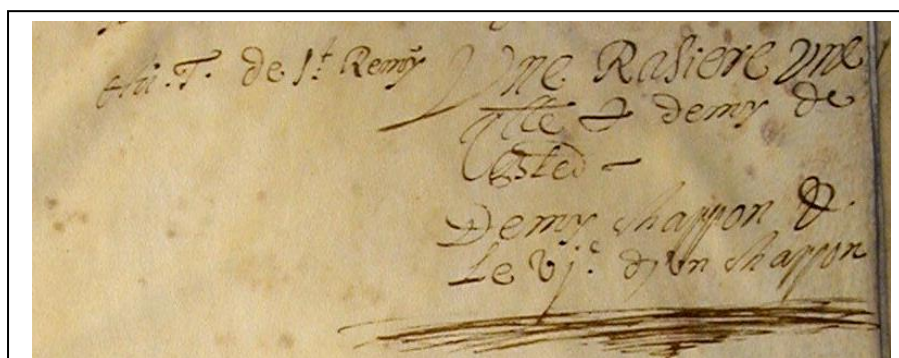 T. de St Remÿ
Une Rasiere Une
& demy de
Demy chappon &
Le vj.e d'un chappon